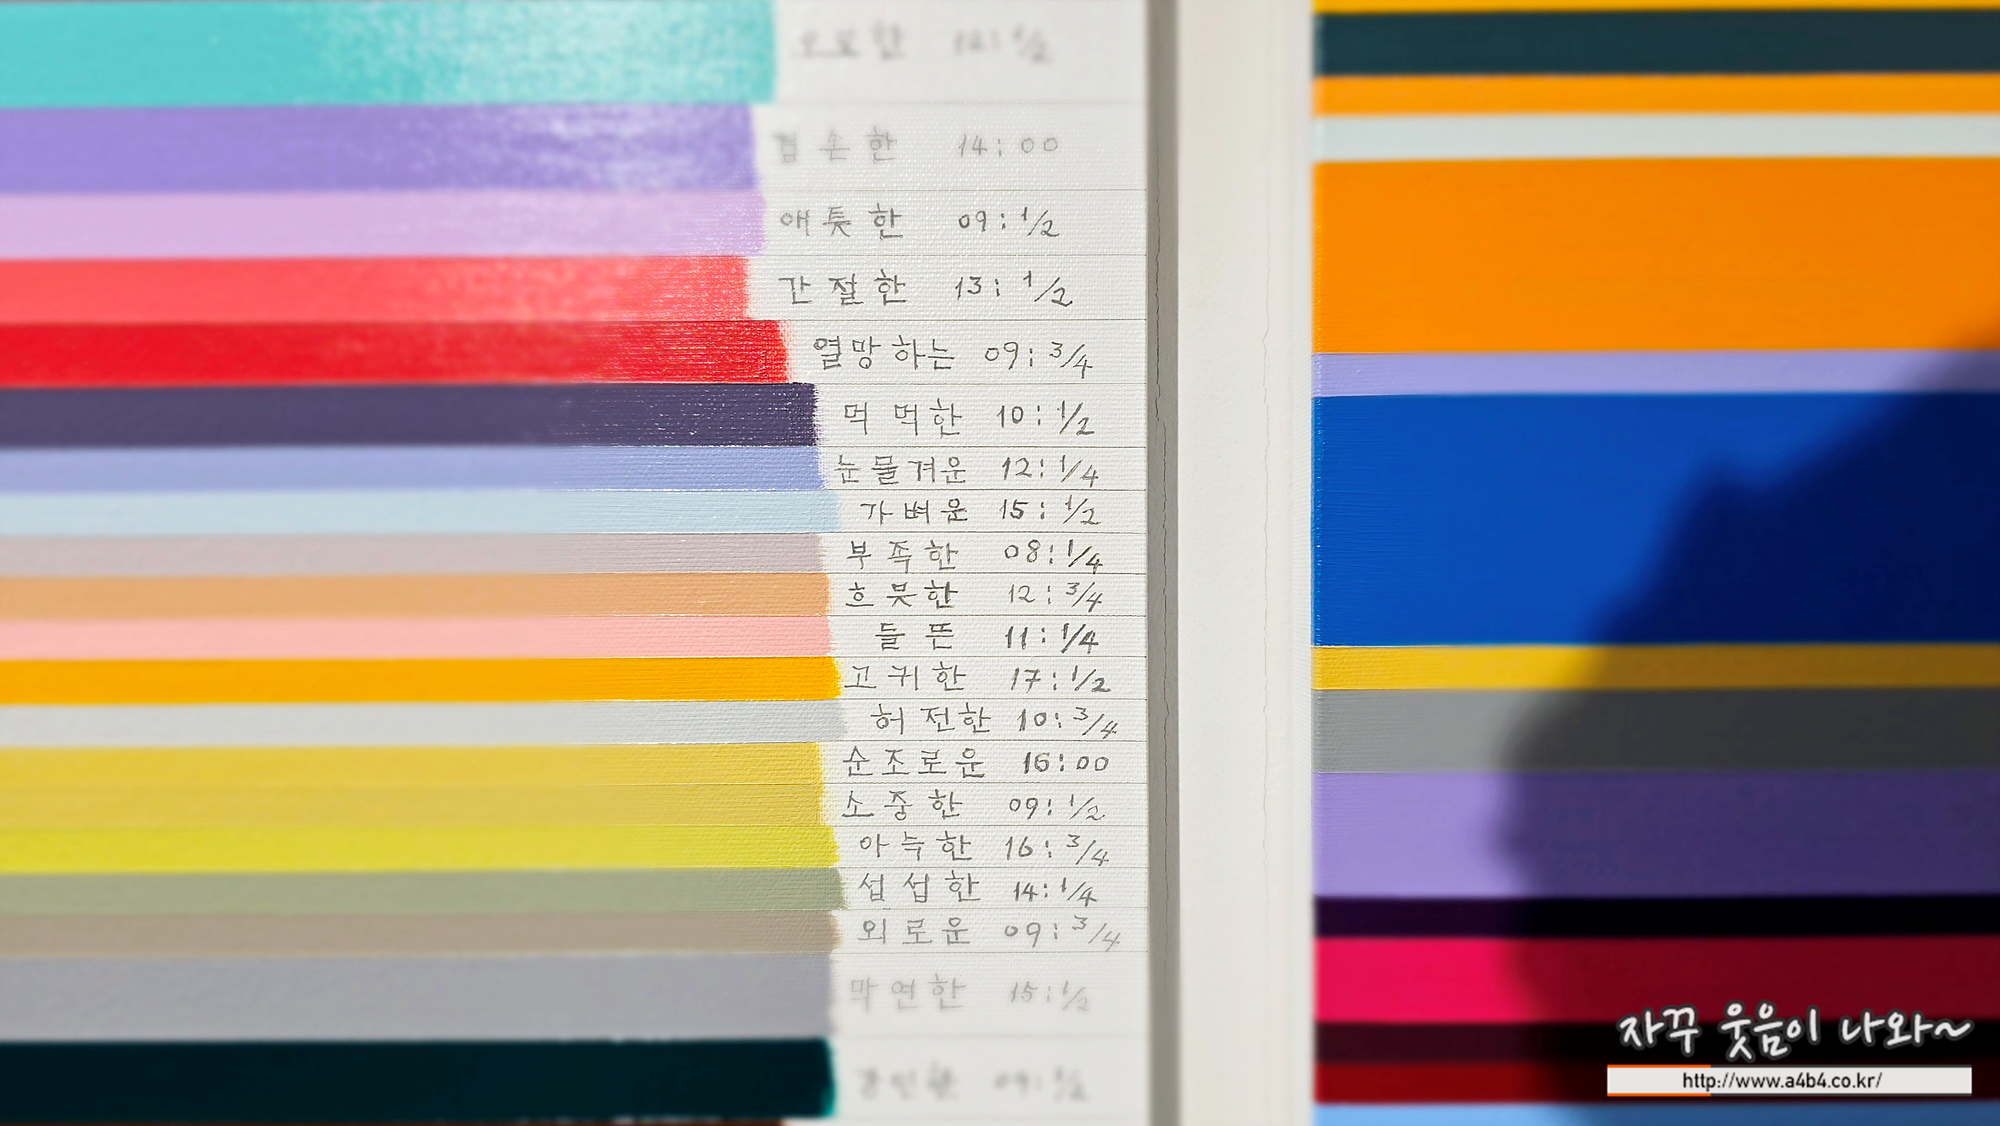 겸손한 14:00
애틋한 09:1/2
간절한 13:1/2
열망하는 09:3/4
먹먹한 10:1/2
눈물겨운 12:1/4
가벼운 15:1/2
부족한 08:1/4
흐뭇한 12:3/4
들뜬 11:1/4
고귀한 17:1/2
허전한 10:3/4
순조로운 16:00
소중한 09:1/2
아늑한 16:3/4
섭섭한 14:1/4
외로운 09:3/4
막연한 15:1/2
자꾸 웃음이 나와~
http://www.a4b4.co.kr/